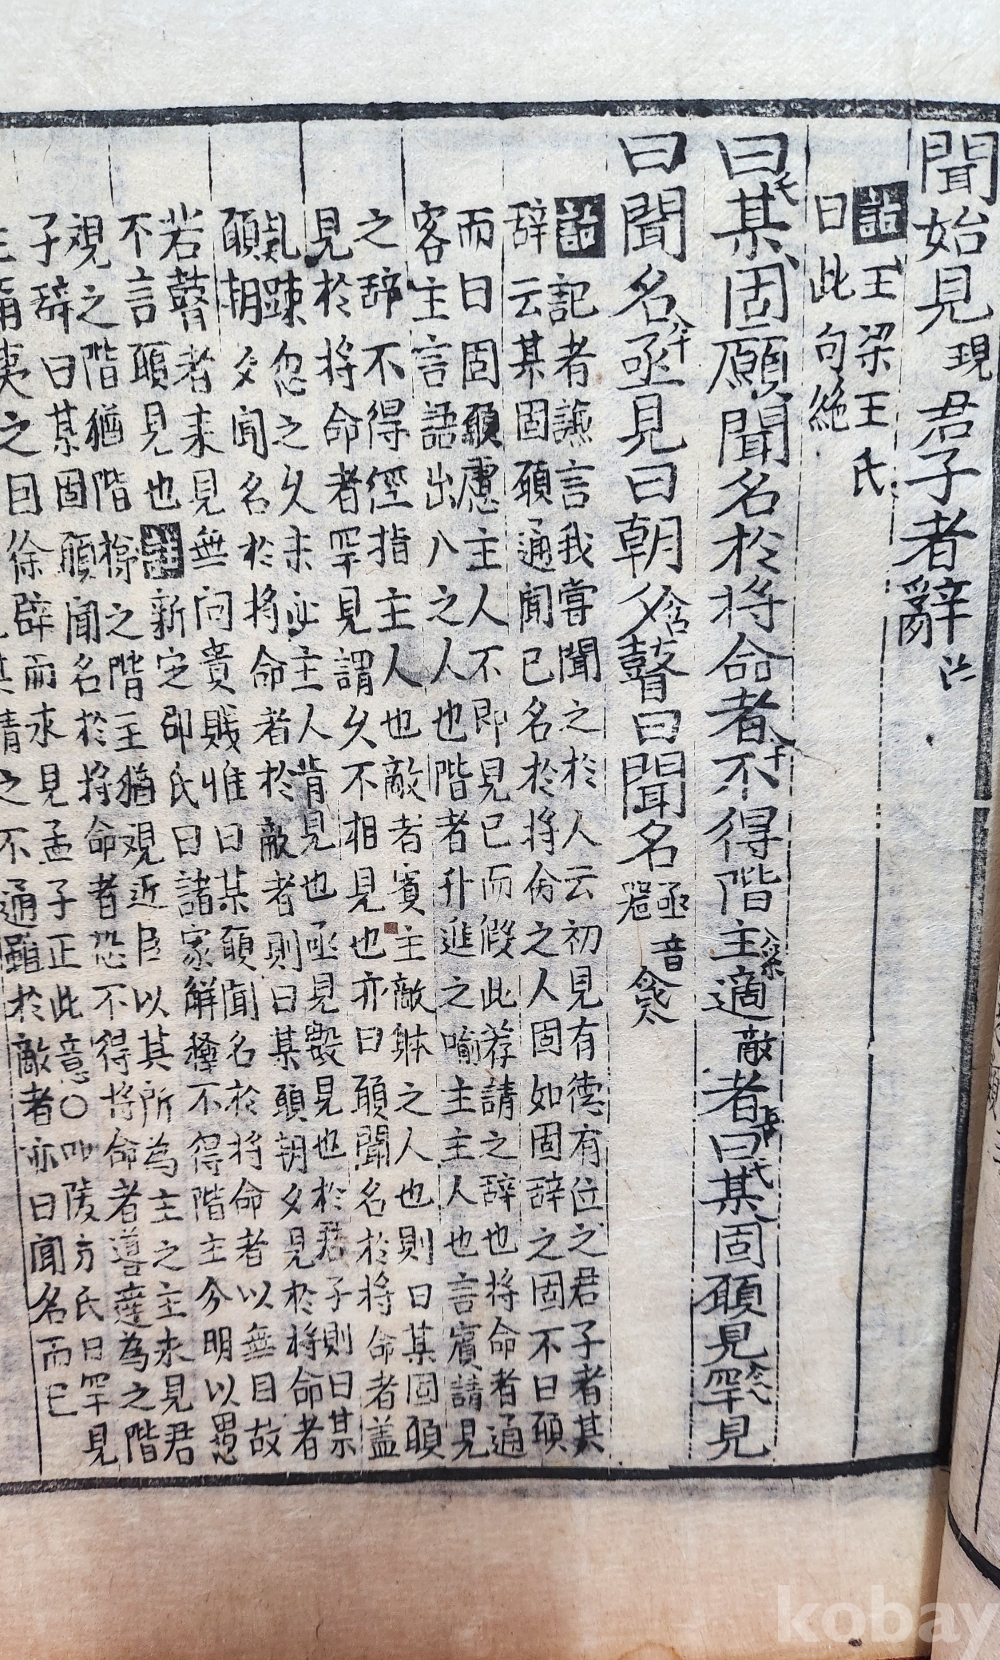 聞始見現君子者辭
註王梁王氏
曰此句絶
曰某固願聞名於將命者不得階主適敵者曰某固願見罕見
曰聞名亟見曰朝夕瞽曰聞名亟音器
註記者謙言我嘗聞之於人云初見有德有位之君子者其
辞云某固願通聞已名於將命之人固如固辞之固不曰願
而曰固願慮主人不即見已而假此荐請之辞也將命者通
客主言語出入之人也階者升進之喻主主人也言賓請見
之辞不得徑指主人也敵者賓主敵躰之人也則曰某固願
見於將命者罕見謂久不相見也亦曰願聞名於將命者盖
疎忽之久未必主人肯見也亟見數見也於君子則曰某
願朝夕聞名於將命者於敵者則曰某願朝夕見於將命者
若瞽者来見無问貴賎惟曰某願聞名於將命者以無目故
不言願見也註新定邵氏曰諸家解釋不得階主今明以愚
覌之階猶階梯之階主猶覌近臣以其所為主之主求見君
子辞曰某固願聞名於將命者恐不得將命者導達為之階
主有夷之因徐辟而求見孟子正此意○陵方氏曰罕見
其情之不通雖於敵者亦曰聞名而已
kobay